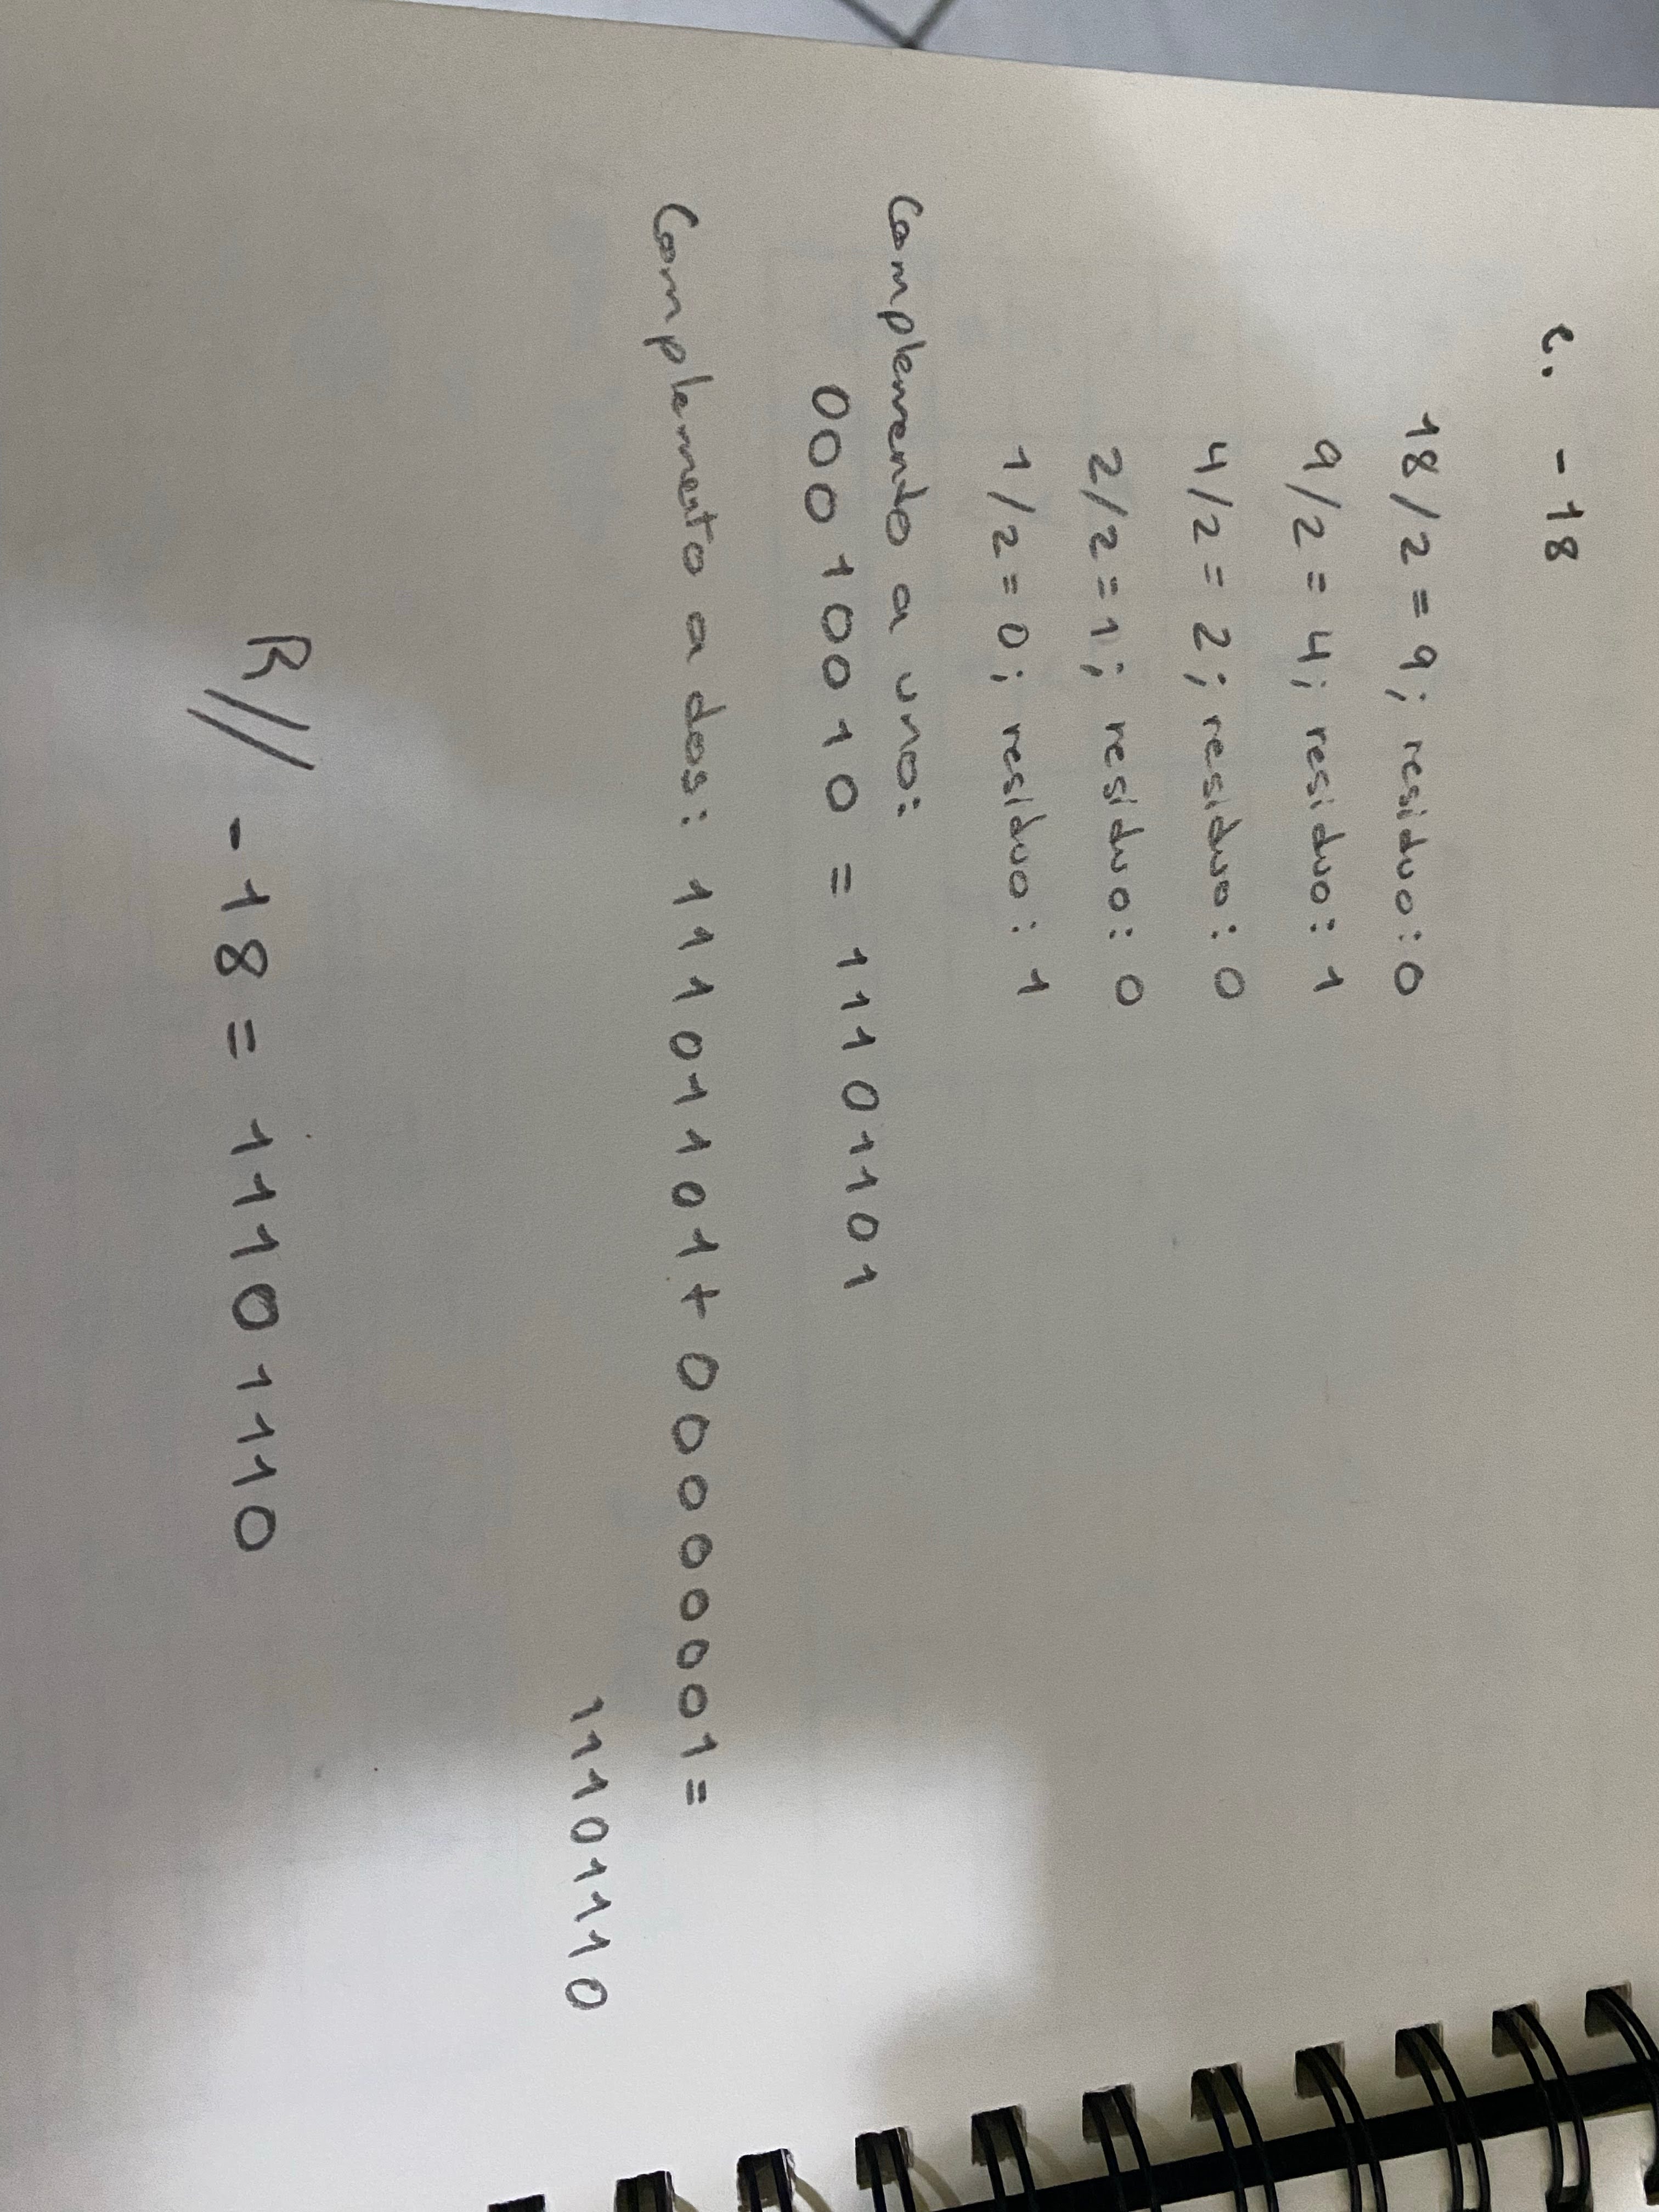 c. -18
18/2 = 9; residuo: 0
9/2 = 4; residuo: 1
4/2 = 2; residuo: 0
2/2 = 1; residuo: 0
1/2 = 0; residuo: 1
Complemento a uno:
00010010 = 11101101
Complemento a dos: 11101101 + 00000001 =
11101110
R// -18 = 11101110